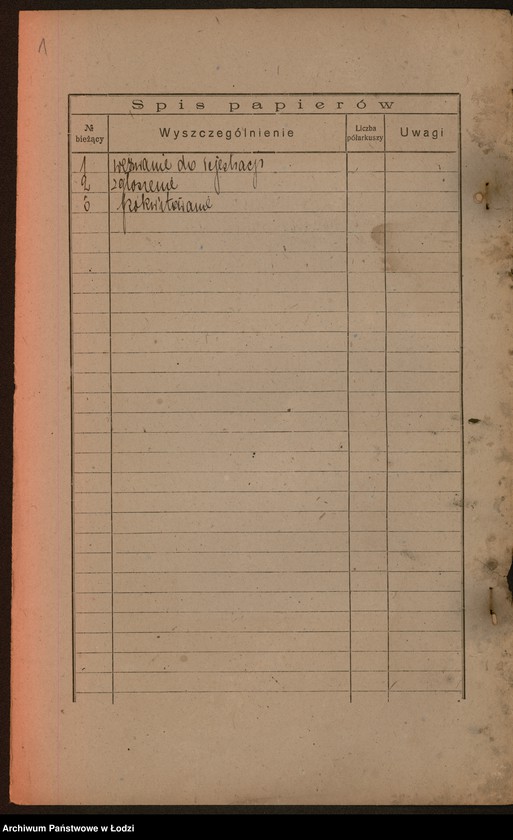 1
Spis papierów
№ bieżący Wyszczególnienie Liczba półarkuszy Uwagi
1 wezwanie do rejestracji
2 zgłoszenie
3 pokwitowanie
Archiwum Państwowe w Łodzi